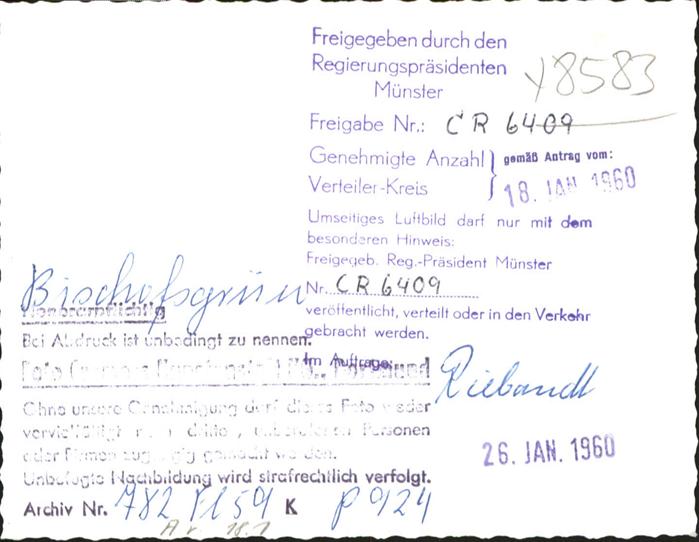 Freigegeben durch den
Regierungspräsidenten
Münster
y8583
Freigabe Nr.: CR 6409
Genehmigte Anzahl
Verteiler-Kreis
gemäß Antrag vom:
18. JAN 1960
Umseitiges Luftbild darf nur mit dem
besonderen Hinweis:
Freigegeb. Reg.-Präsident Münster
Nr. CR 6409
veröffentlicht, verteilt oder in den Verkehr
gebracht werden.
Im Auftrage:
Riebandt
26. JAN. 1960
Bischofsgrün
Honorarpflichtig
Bei Abdruck ist unbedingt zu nennen:
Foto
Ohne unsere Genehmigung darf dieses Foto weder
vervielfältigt dritten, unberufenen Personen
oder Firmen zugängig gemacht werden.
Unbefugte Nachbildung wird strafrechtlich verfolgt.
Archiv Nr. 782 Fl 59 K P 924